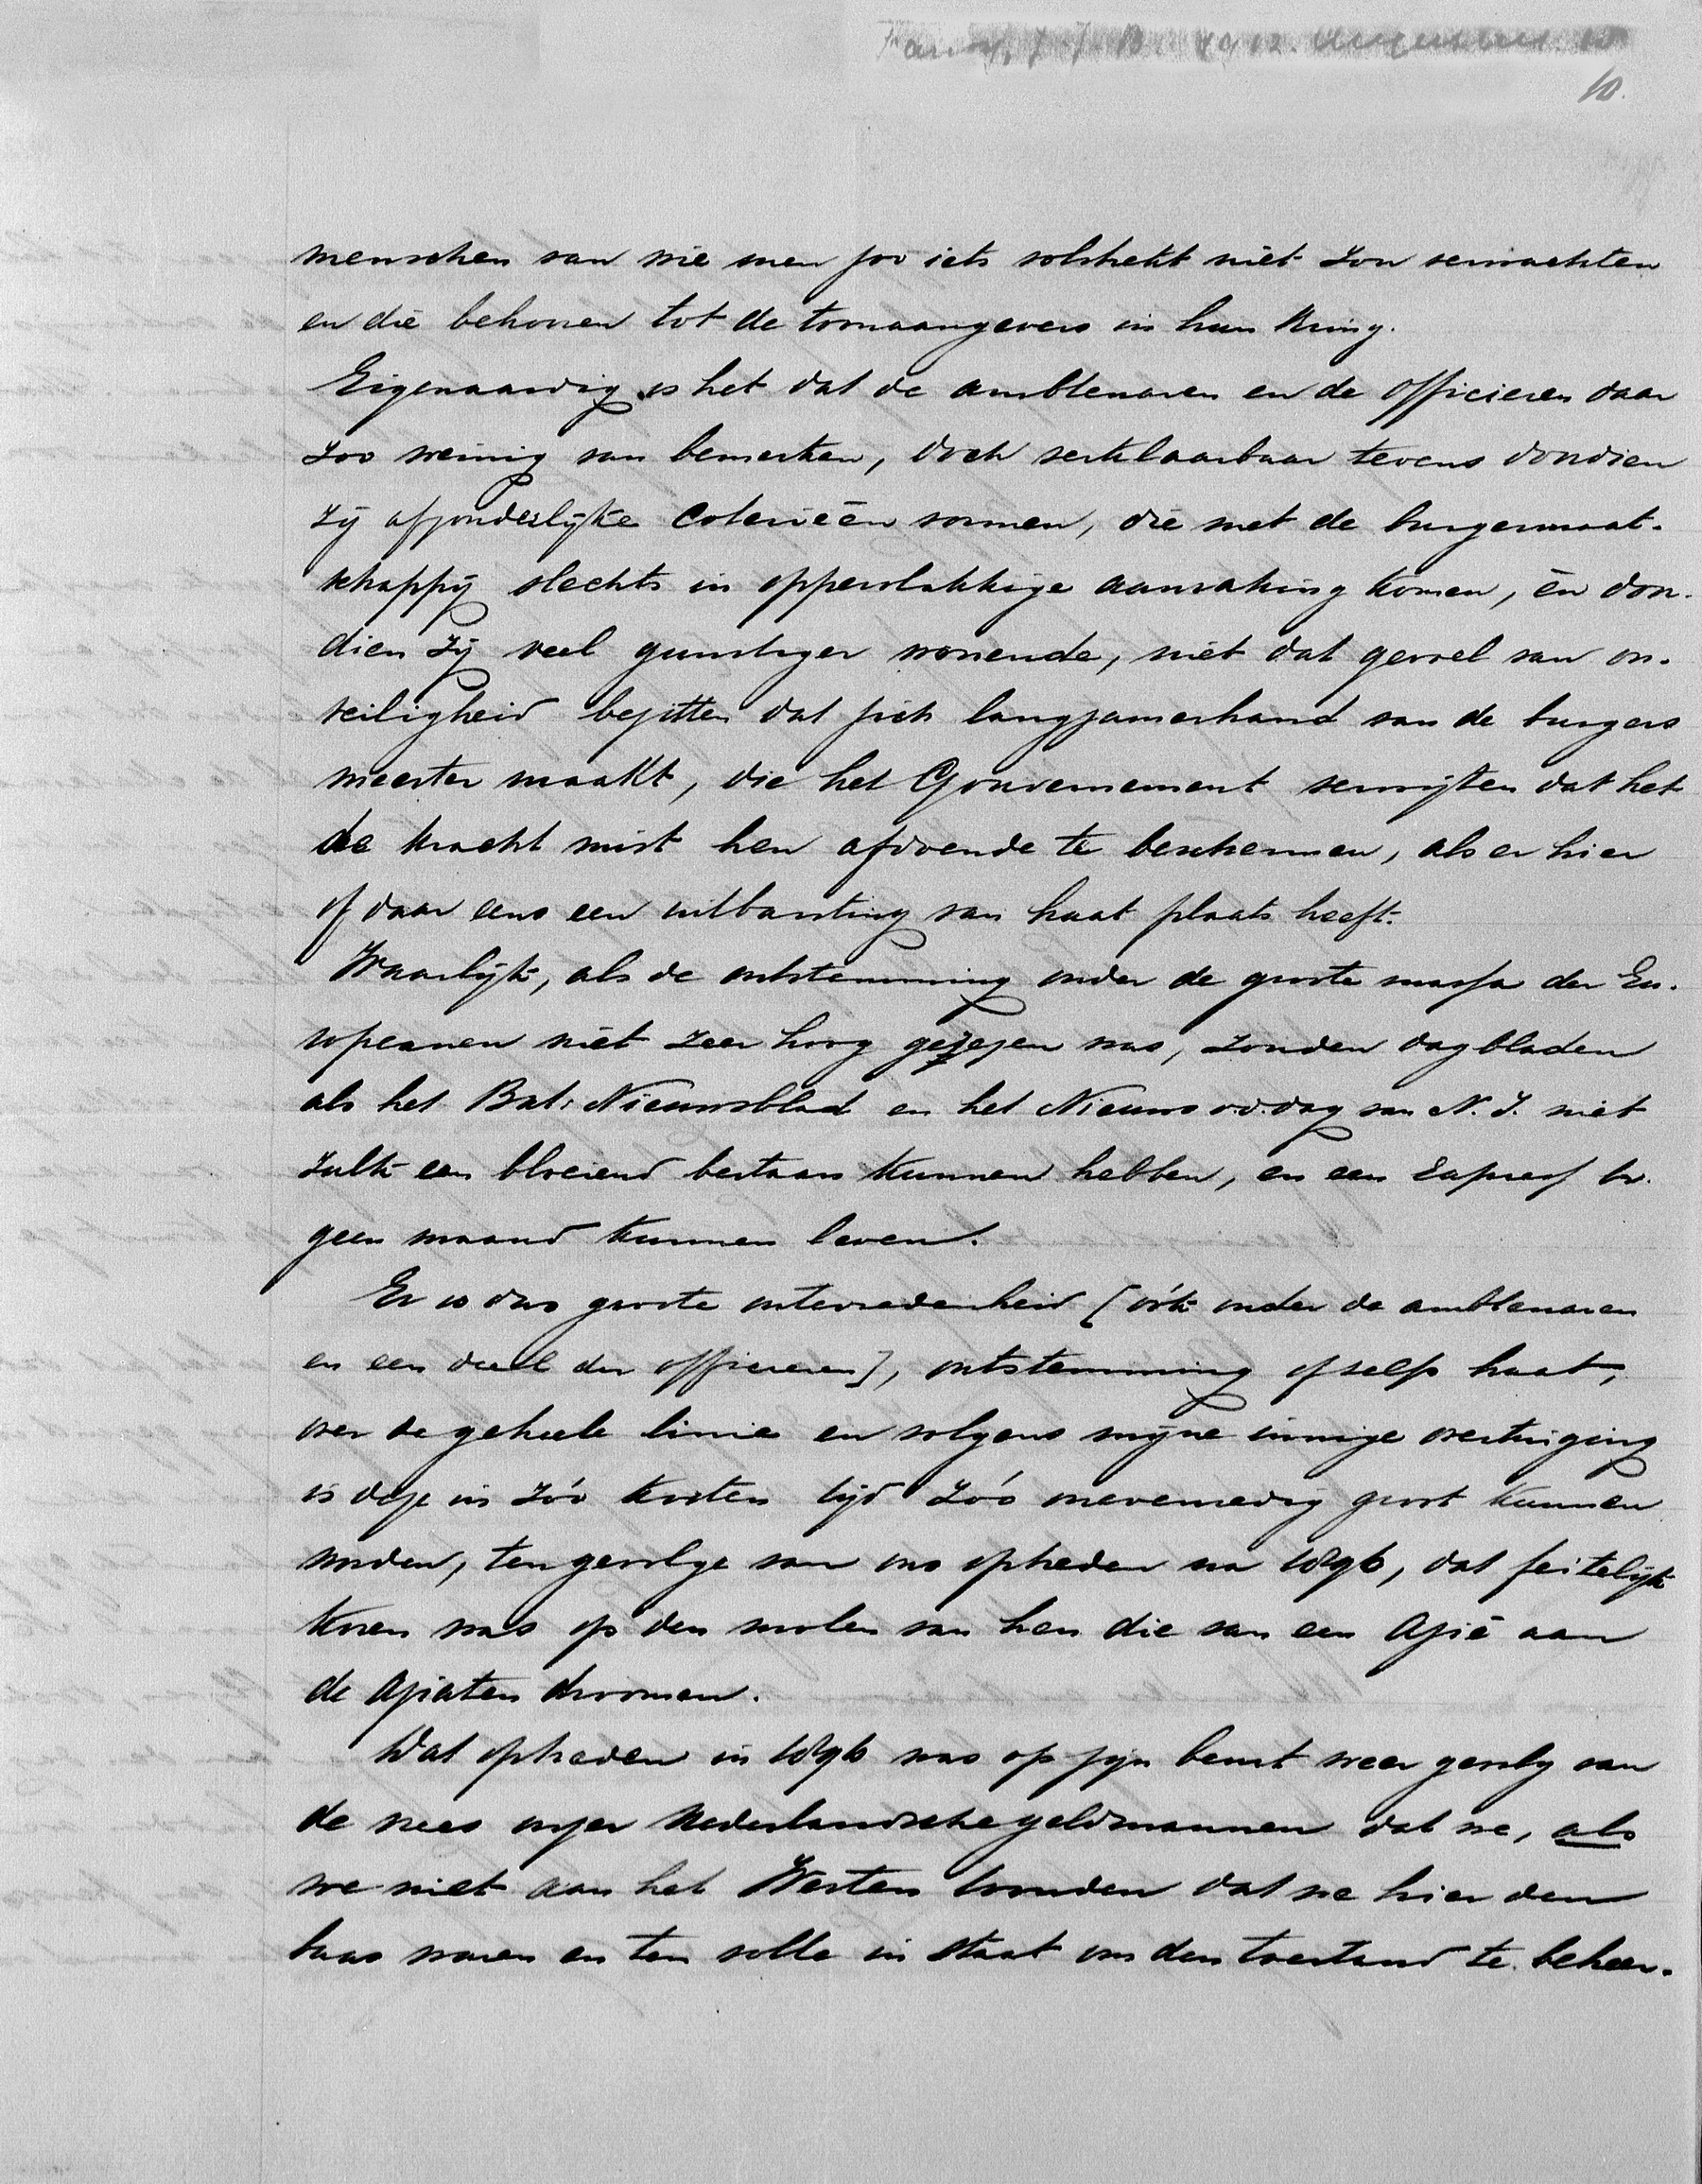 10.
menschen van wie men zoo iets volstrekt niet zou verwachten
en die behooren tot de toonaangevers in hun kring.
Eigenaardig is het dat de ambtenaren en de officieren daar
zoo weinig van bemerken, doch verklaarbaar tevens doordien
zij afzonderlijke coterieën vormen, die met de burgermaat-
schappij slechts in oppervlakkige aanraking komen, én door-
dien zij veel gunstiger wonende, niet dat gevoel van on-
veiligheid bezitten dat zich langzamerhand van de burgers
meester maakt, die het Gouvernement verwijten dat het
de kracht mist hen afdoende te beschermen, als er hier
of daar eens een uitbarsting van haat plaats heeft.
Waarlijk, als de ontstemming onder de groote massa der Eu-
ropeanen niét zeer hoog gezezen was, zouden dagbladen
als het Bat. Nieuwsblad en het Nieuws v.d. dag van N.I. niet
zulk een bloeiend bestaan kunnen hebben, en een Expres
geen maand kunnen leven.
Er is dus groote ontevredenheid [óók onder de ambtenaren
en een deel der officieren], ontstemming of zelfs haat,
over de geheele linie en volgens mijne innige overtuiging
is deze in zóó korten tijd zóó onevenredig groot kunnen
worden, tengevolge van ons optreden na 1896, dat feitelijk
koren was op den molen van hen die van een Azië aan
de Aziaten droomen.
Dat optreden in 1896 was op zijn beurt weer gevolg van
de vrees onzer Nederlandsche geldmannen dat we, als
we niet aan het Westen toonden dat we hier den
baas waren en ten volle in staat om den toestand te beheer-